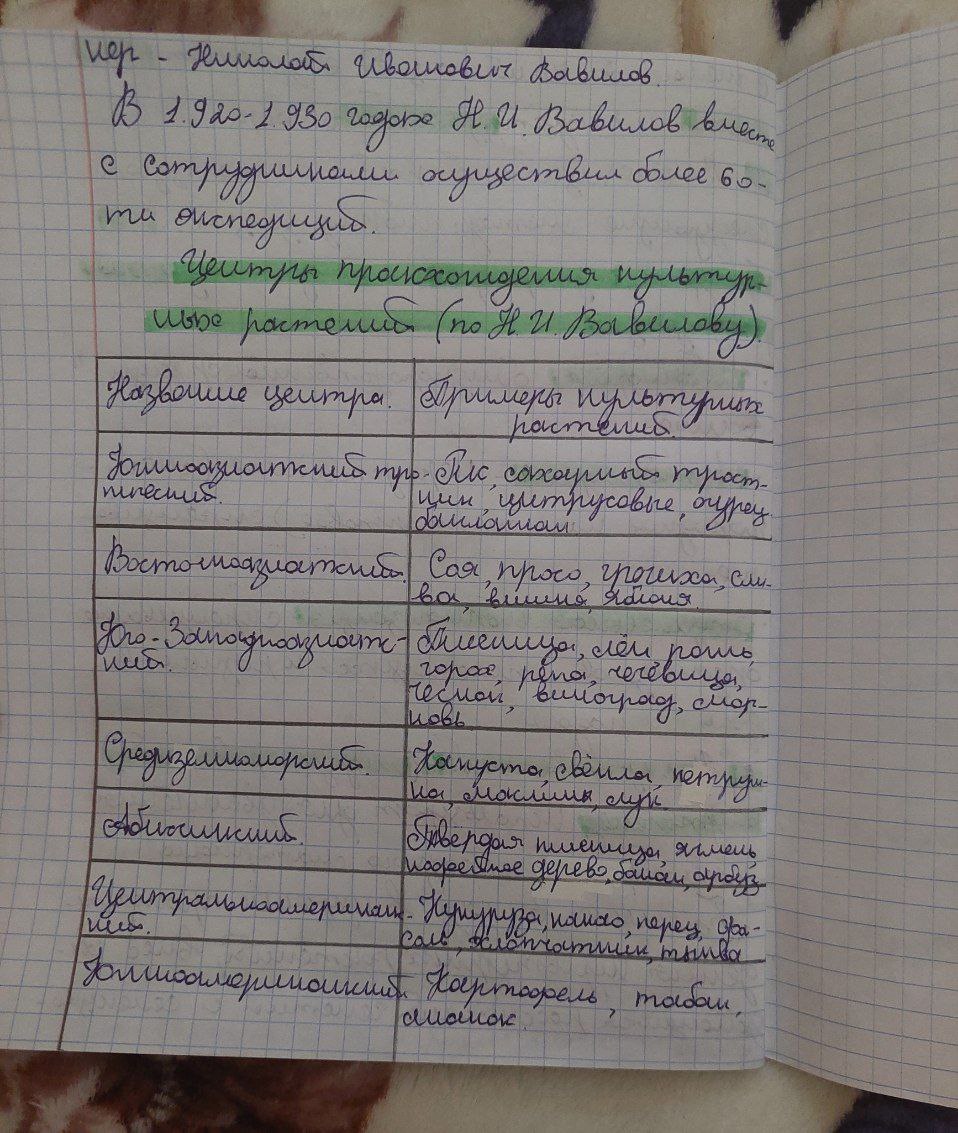 нер - Николай Иванович Вавилов.
В 1.920-1.930 годах Н.И. Вавилов вместе
с сотрудниками осуществил более 60-
ти экспедиций.
Центры происхождения культур-
ных растений (по Н.И. Вавилову).
Название центра.
Примеры культурных
растений.
Южноазиатский тро-
пический.
Рис, сахарный трост-
ник, цитрусовые, огурец
баклажан
Восточноазиатский.
Соя, просо, гречиха, сли-
ва, вишня, яблоня.
Юго-Западноазиатс-
кий.
Пшеница, лён рожь,
горох, репа, чечевица,
чеснок, виноград, мор-
ковь
Средиземноморский.
Капуста, свёкла, петруш-
ка, маслины, лук
Абиссинский.
Твёрдая пшеница, ячмень,
кофейное дерево, банан, арбуз
Центральноамерикан-
ский.
Кукуруза, какао, перец, фа-
соль, хлопчатник, тыква
Южноамериканский
Картофель, табак,
ананас.